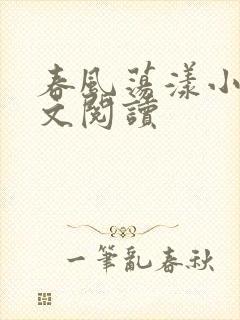 春風蕩漾小
文閱讀
一筆亂春秋